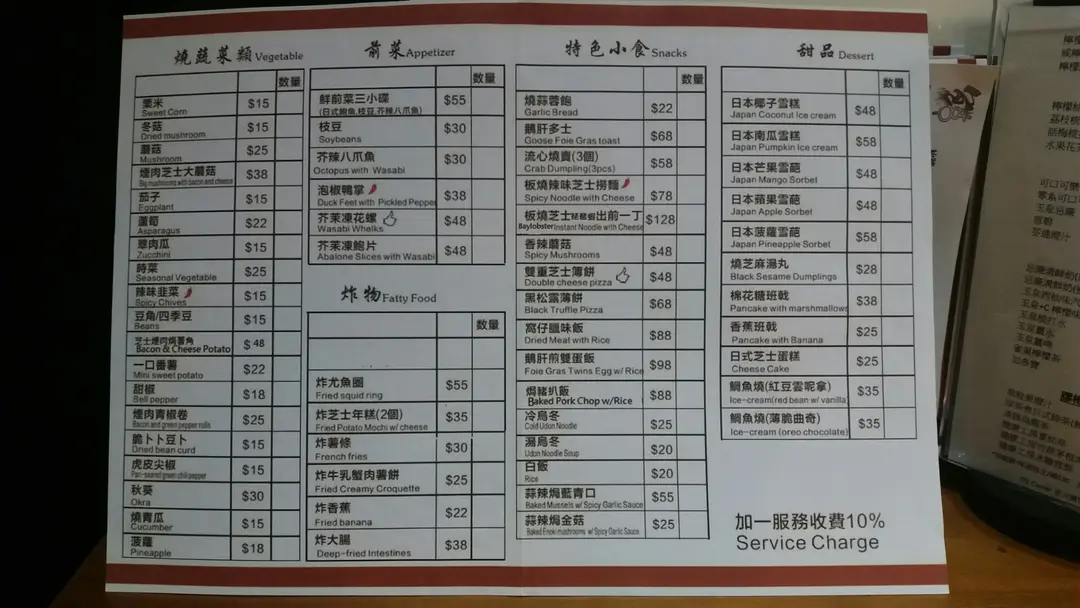 燒蔬菜類 Vegetable
数量
粟米 $15
Sweet Corn
冬菇 $15
Dried mushroom
蘑菇 $25
Mushroom
煙肉芝士大蘑菇 $38
Big mushrooms with bacon and cheese
茄子 $15
Eggplant
蘆筍 $22
Asparagus
翠肉瓜 $15
Zucchini
時菜 $25
Seasonal Vegetable
辣味韭菜 $15
Spicy Chives
豆角/四季豆 $15
Beans
芝士煙肉焗薯角 $48
Bacon & Cheese Potato
一口番薯 $22
Mini sweet potato
甜椒 $18
Bell pepper
煙肉青椒卷 $25
Bacon and green pepper rolls
脆卜卜豆卜 $15
Dried bean curd
虎皮尖椒 $15
Pan-seared green chili pepper
秋葵 $30
Okra
燒青瓜 $15
Cucumber
菠蘿 $18
Pineapple
前菜 Appetizer
数量
鮮前菜三小碟 $55
(日式鮑魚,枝豆,芥辣八爪魚)
枝豆 $30
Soybeans
芥辣八爪魚 $30
Octopus with Wasabi
泡椒鴨掌 $38
Duck Feet with Pickled Pepper
芥茉凍花螺 $48
Wasabi Whelks
芥茉凍鮑片 $48
Abalone Slices with Wasabi
炸物 Fatty Food
数量
炸尤魚圈 $55
Fried squid ring
炸芝士年糕(2個) $35
Fried Potato Mochi w/ cheese
炸薯條 $30
French fries
炸牛乳蟹肉薯餅 $25
Fried Creamy Croquette
炸香蕉 $22
Fried banana
炸大腸 $38
Deep-fried Intestines
特色小食 Snacks
数量
燒蒜蓉飽 $22
Garlic Bread
鵝肝多士 $68
Goose Foie Gras toast
流心燒賣(3個) $58
Crab Dumpling(3pcs)
板燒辣味芝士撈麵 $78
Spicy Noodle with Cheese
板燒芝士琵琶蝦出前一丁 $128
Baylobster Instant Noodle with Cheese
香辣蘑菇 $48
Spicy Mushrooms
雙重芝士薄餅 $48
Double cheese pizza
黑松露薄餅 $68
Black Truffle Pizza
窩仔臘味飯 $88
Dried Meat with Rice
鵝肝煎雙蛋飯 $98
Foie Gras Twins Egg w/ Rice
焗豬扒飯 $88
Baked Pork Chop w/Rice
冷烏冬 $25
Cold Udon Noodle
湯烏冬 $20
Udon Noodle Soup
白飯 $20
Rice
蒜辣焗藍青口 $55
Baked Mussels w/ Spicy Garlic Sauce
蒜辣焗金菇 $25
Baked Enoki mushrooms w/ Spicy Garlic Sauce
甜品 Dessert
数量
日本椰子雪糕 $48
Japan Coconut Ice cream
日本南瓜雪糕 $58
Japan Pumpkin Ice cream
日本芒果雪葩 $48
Japan Mango Sorbet
日本蘋果雪葩 $48
Japan Apple Sorbet
日本菠蘿雪葩 $58
Japan Pineapple Sorbet
燒芝麻湯丸 $28
Black Sesame Dumplings
棉花糖班戟 $38
Pancake with marshmallows
香蕉班戟 $25
Pancake with Banana
日式芝士蛋糕 $25
Cheese Cake
鯛魚燒(紅豆雲呢拿) $35
Ice-cream(red bean w/ vanilla)
鯛魚燒(薄脆曲奇) $35
Ice-cream (oreo chocolate)
加一服務收費10%
Service Charge